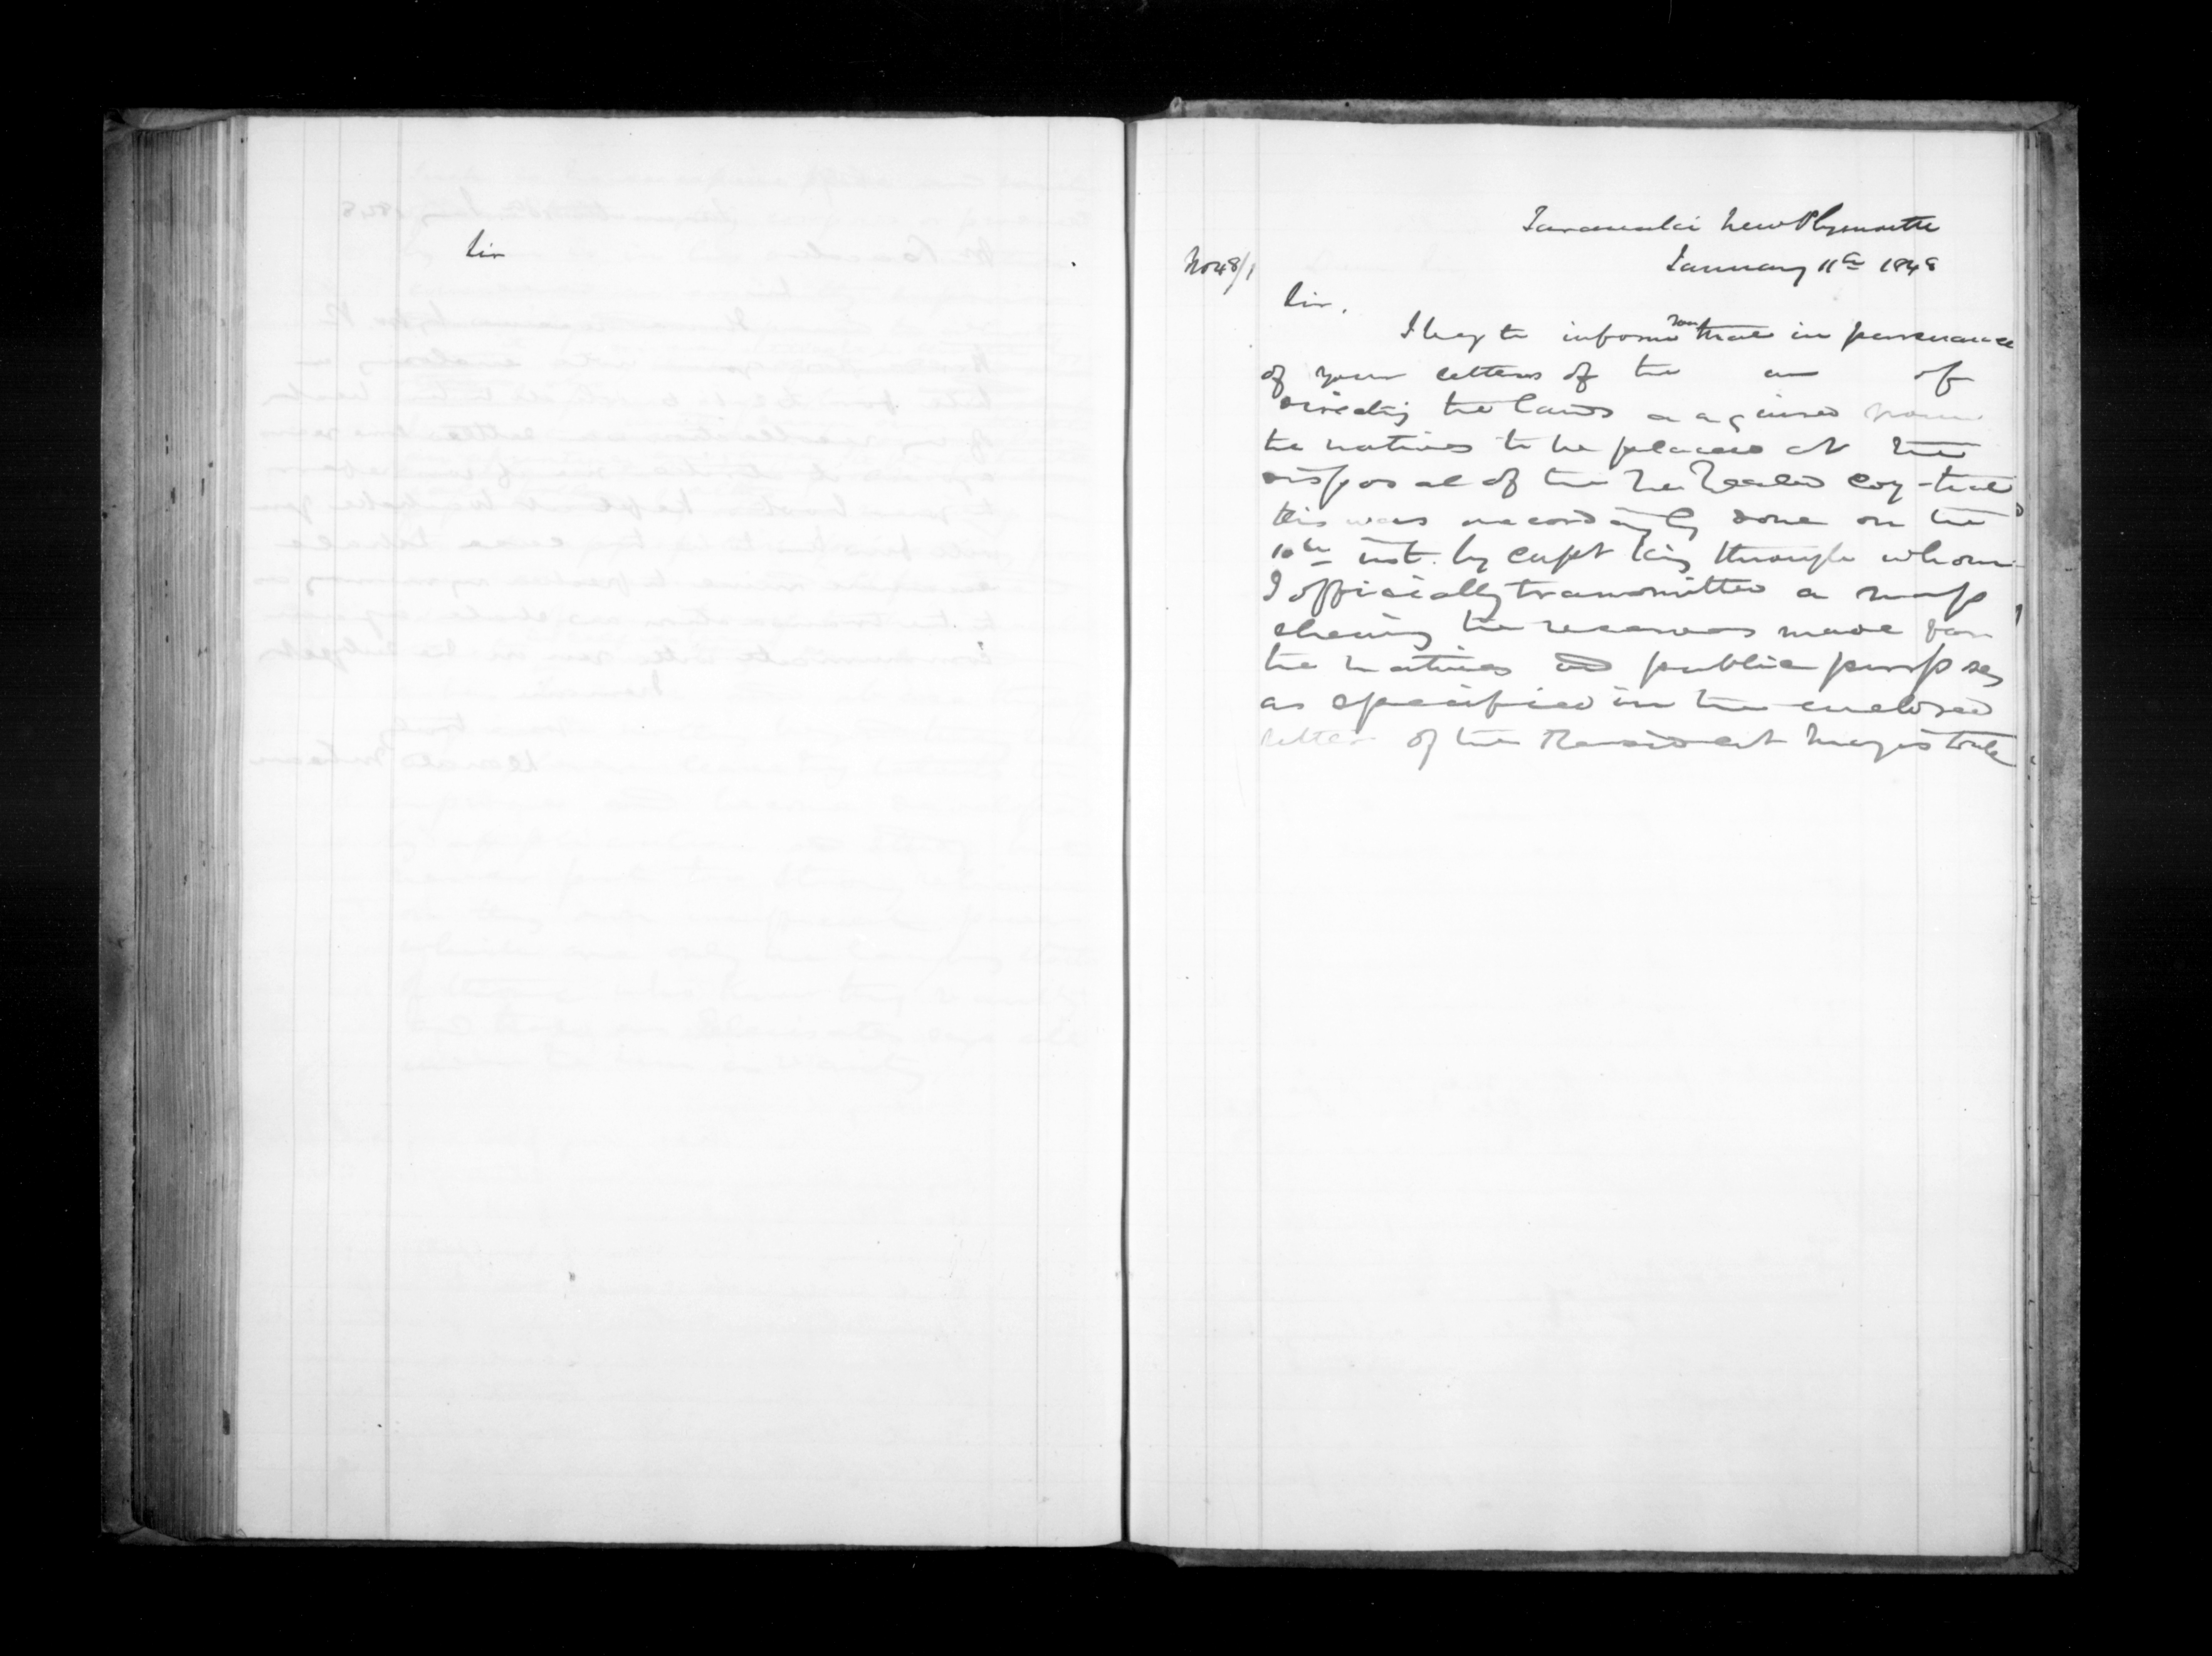 Sir
Taranaki New Plymouth
No 48/1 January 11th 1848
Sir,
I beg to inform you that in pursuance
of your letters of the and of
directing the lands acquired from
the natives to be placed at the
disposal of the New Zealand Coy - that
this was accordingly done on the
10th inst. by Capt King through whom
I officially transmitted a map
shewing the reserves made for
the natives and public purposes
as specified in the enclosed
letter of the Resident Magistrate